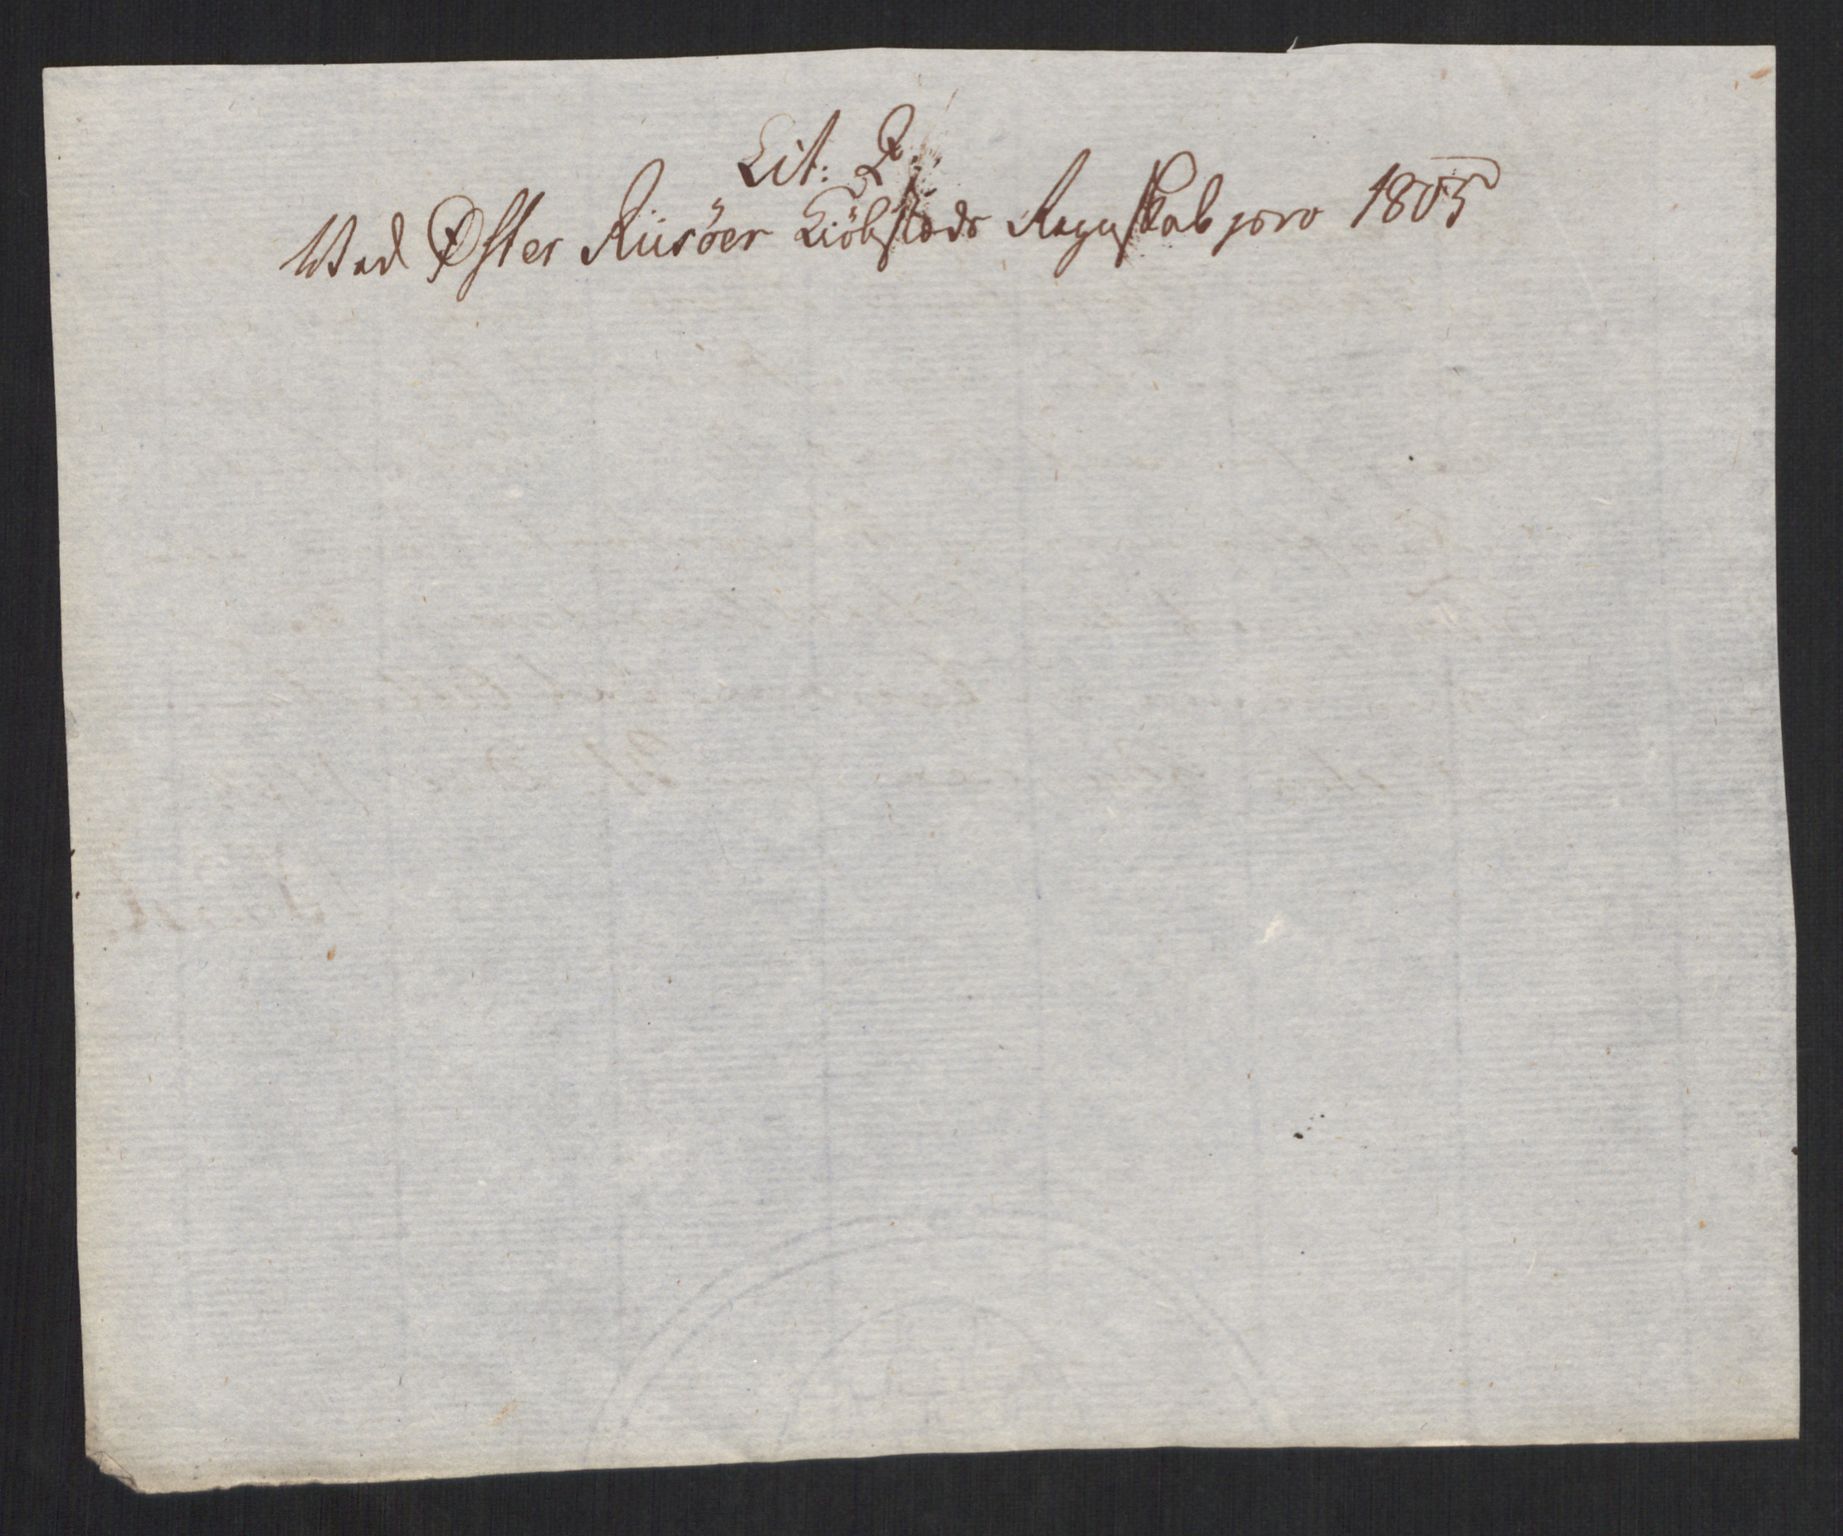 Lit: Q
Ved Øster Riisöer Kiöbstæds Regnskab pro 1805